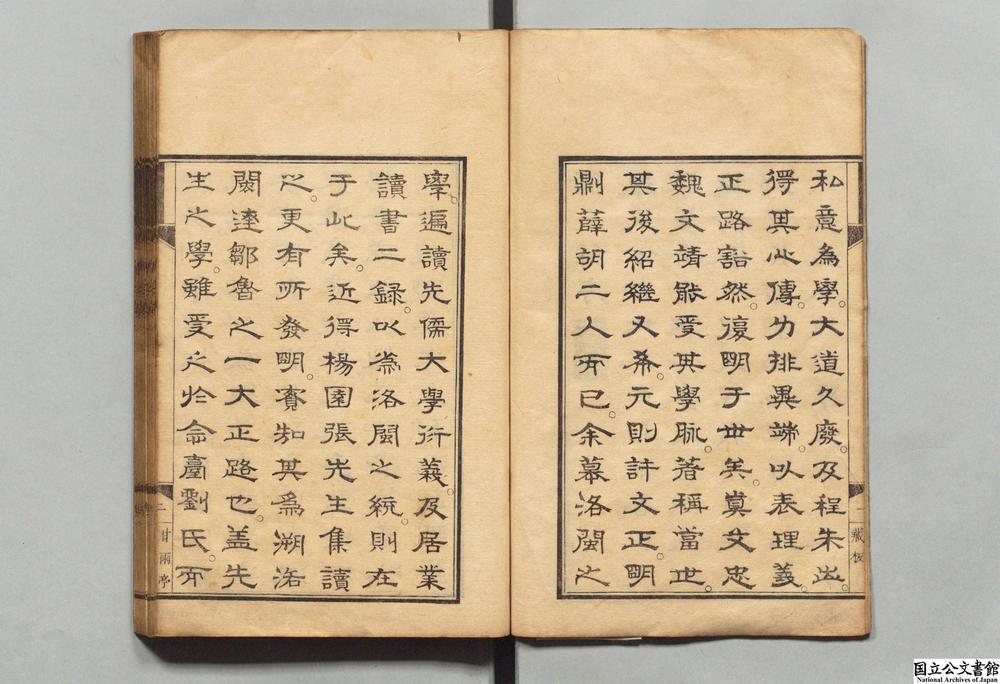 私意為學。大道久廢。及程朱出。
得其心傳。力排異端。以表理義。
正路豁然。復明于世矣。眞文忠
魏文靖能受其學脉。著稱當世。
其後紹繼又希。元則許文正。明
則薛胡二人而已。余慕洛閩之
一 藏板
學。遍讀先儒大學衍義。及居業
讀書二録。以為洛閩之統。則在
于此矣。近得楊園張先生集讀
之。更有所發明。實知其為溯洛
閩達鄒魯之一大正路也。蓋先
生之學。雖受之於念臺劉氏。而
二 甘雨亭
国立公文書館
National Archives of Japan